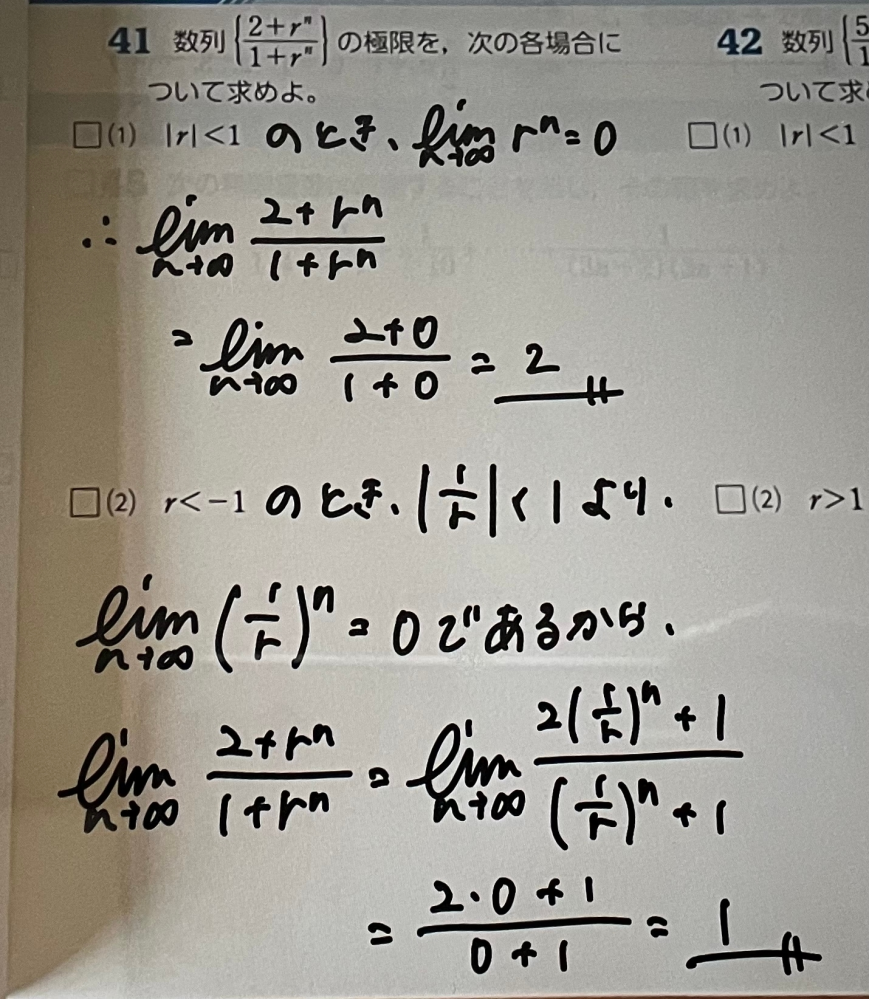 41 数列{(2+rⁿ)/(1+rⁿ)}の極限を，次の各場合に
ついて求めよ。
□(1) |r|<1 のとき、lim_{n→∞} rⁿ=0
∴ lim_{n→∞} (2+rⁿ)/(1+rⁿ)
= lim_{n→∞} (2+0)/(1+0) = 2
□(2) r<-1 のとき、|1/r|<1より、
lim_{n→∞} (1/r)ⁿ=0であるから、
lim_{n→∞} (2+rⁿ)/(1+rⁿ) = lim_{n→∞} (2(1/r)ⁿ+1)/((1/r)ⁿ+1)
= (2・0+1)/(0+1) = 1
42 数列{5
1
ついて求
□(1) |r|<1
□(2) r>1